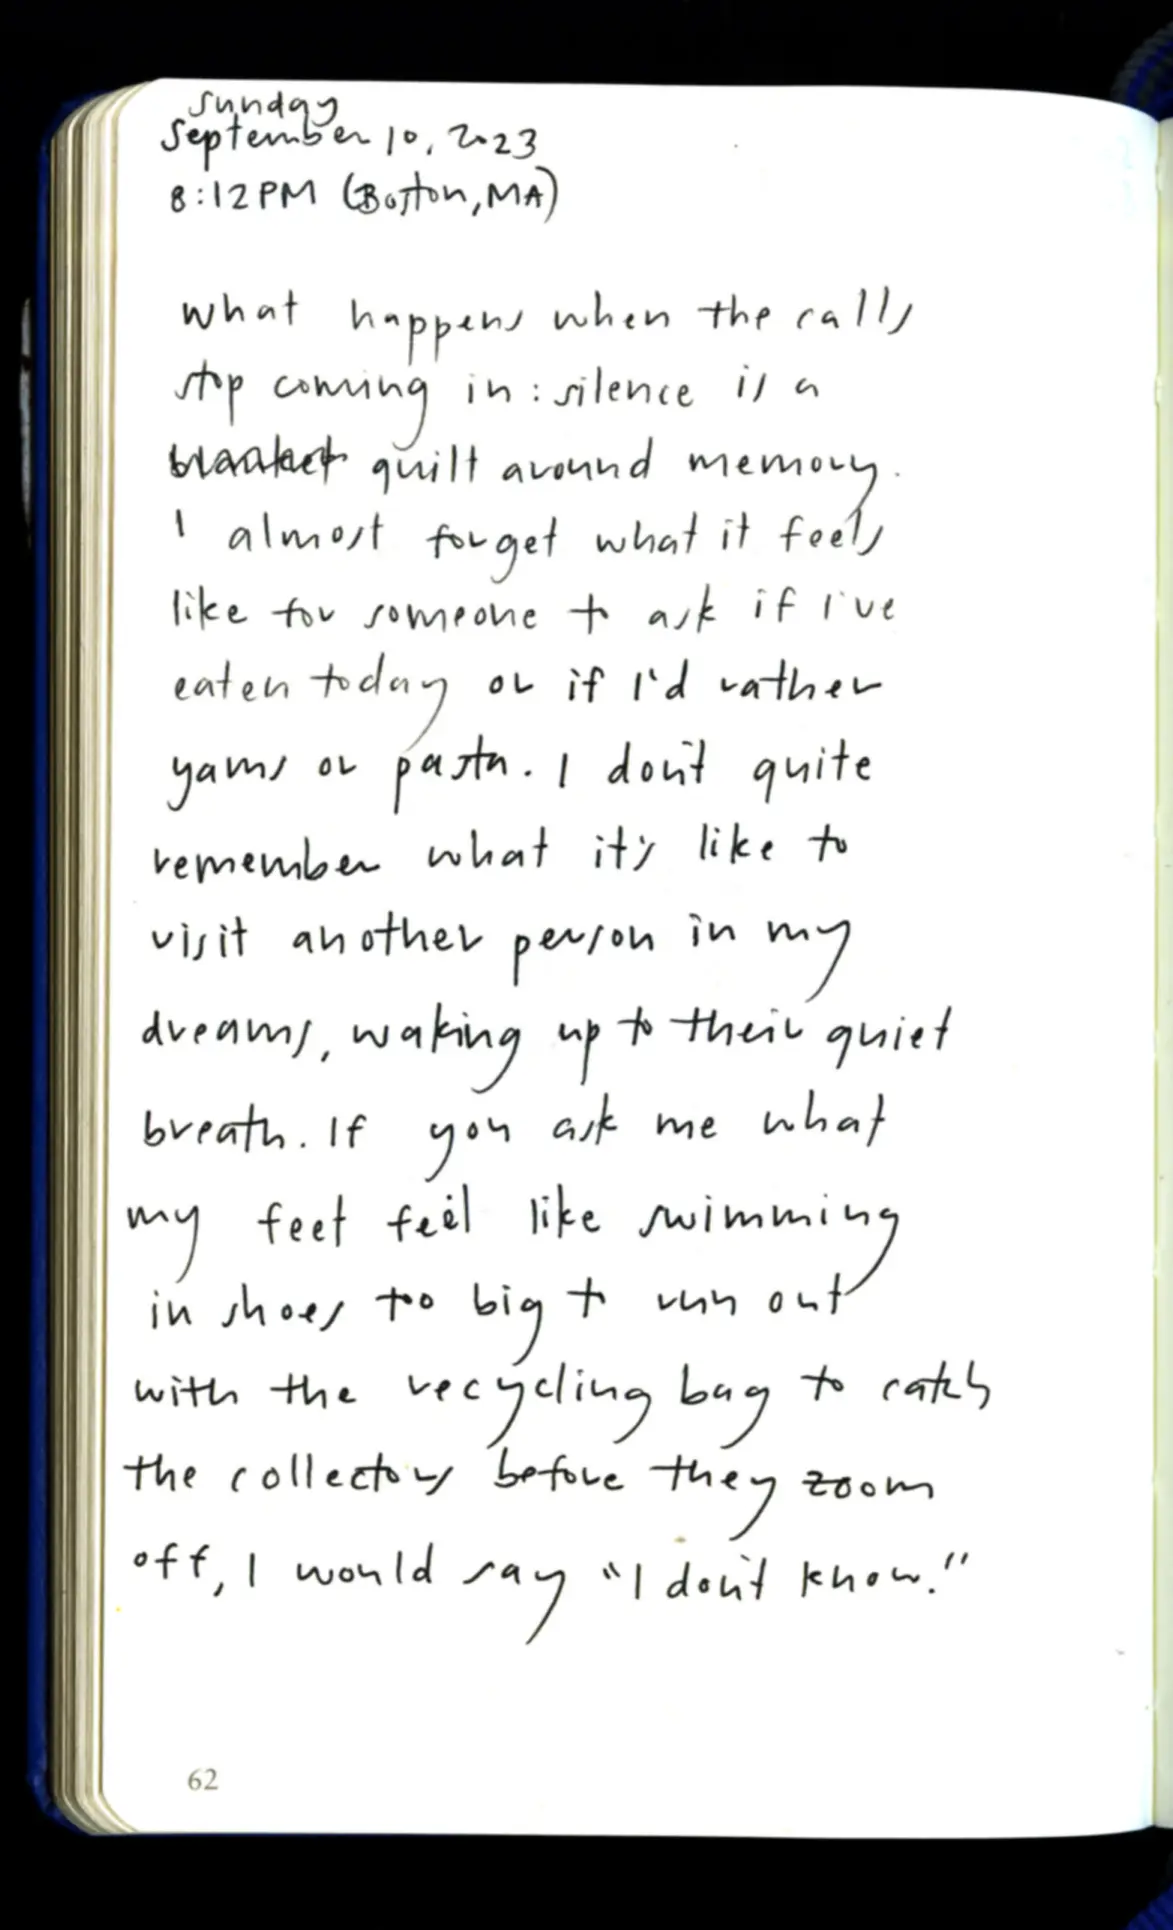 Sunday
September 10, 2023
8:12PM (Boston, MA)
what happens when the calls
stop coming in: silence is a
blanket quilt around memory.
I almost forget what it feels
like for someone to ask if I've
eaten today or if I'd rather
yams or pasta. I don't quite
remember what it's like to
visit another person in my
dreams, waking up to their quiet
breath. If you ask me what
my feet feel like swimming
in shoes too big to run out
with the recycling bag to catch
the collectors before they zoom
off, I would say "I don't know."
62